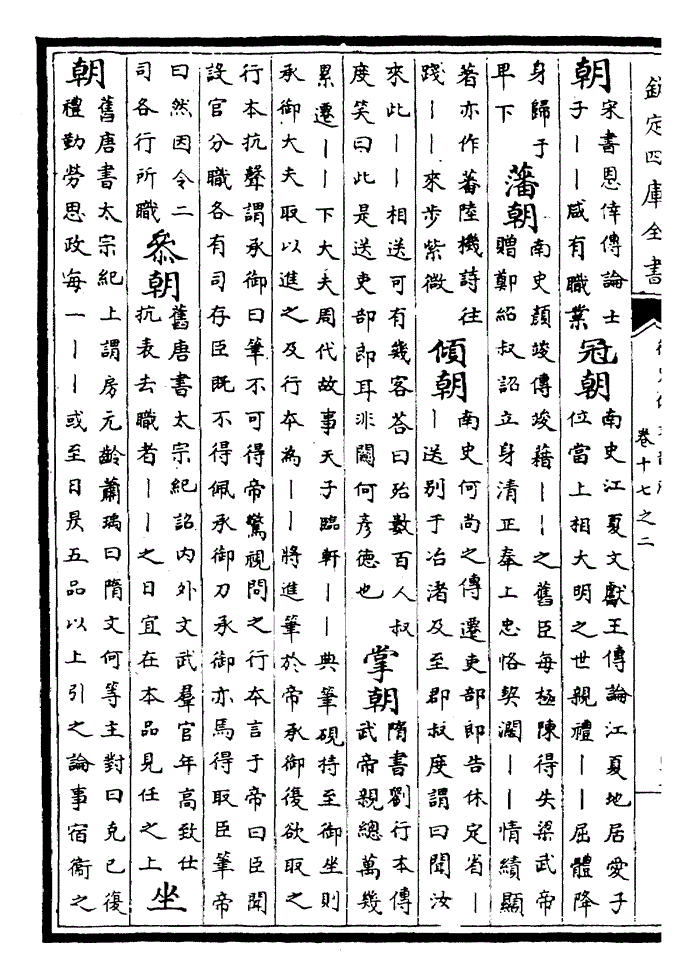 欽定四庫全書
卷十七之二
朝
宋書恩倖傳論士
子｜｜咸有職業
冠朝
南史江夏文獻王傳論江夏地居愛子
位當上相大明之世親禮｜｜屈體降
身歸于
卑下
藩朝
南史顔竣傳竣藉｜｜之舊臣每極陳得失梁武帝
贈鄭紹叔詔立身清正奉上忠恪契濶｜｜情績顯
著亦作蕃陸機詩往
踐｜｜來步紫微
傾朝
南史何尚之傳遷吏部郎告休定省｜
｜送别于冶渚及至郡叔度謂曰聞汝
來此｜｜相送可有幾客荅曰殆數百人叔
度笑曰此是送吏部郎耳非關何彦德也
掌朝
隋書劉行本傳
武帝親總萬幾
累遷｜｜下大夫周代故事天子臨軒｜｜典筆硯持至御坐則
承御大夫取以進之及行本為｜｜將進筆於帝承御復欲取之
行本抗聲謂承御曰筆不可得帝驚視問之行本言于帝曰臣聞
設官分職各有司存臣既不得佩承御刀承御亦焉得取臣筆帝
曰然因令二
司各行所職
叅朝
舊唐書太宗紀詔内外文武羣官年高致仕
抗表去職者｜｜之日宜在本品見任之上
坐
朝
舊唐書太宗紀上謂房元齡蕭瑀曰隋文何等主對曰克已復
禮勤勞思政每一｜｜或至日昃五品以上引之論事宿衛之